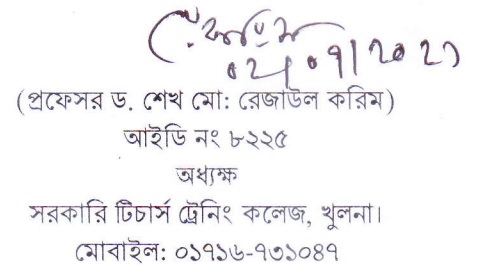 (প্রফেসর ড. শেখ মো: রেজাউল করিম)
আইডি নং ৮২২৫
অধ্যক্ষ
সরকারি টিচার্স ট্রেনিং কলেজ, খুলনা।
মোবাইল: ০১৭১৬-৭৩১০৪৭